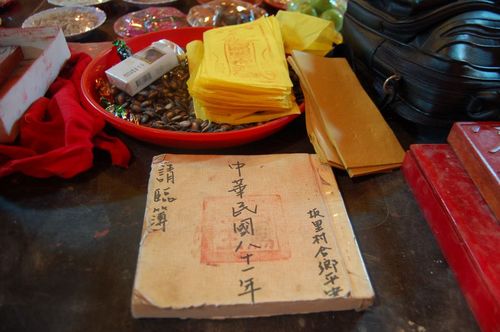 坂里村合鄉平安
中華民國八十一年
請臨簿